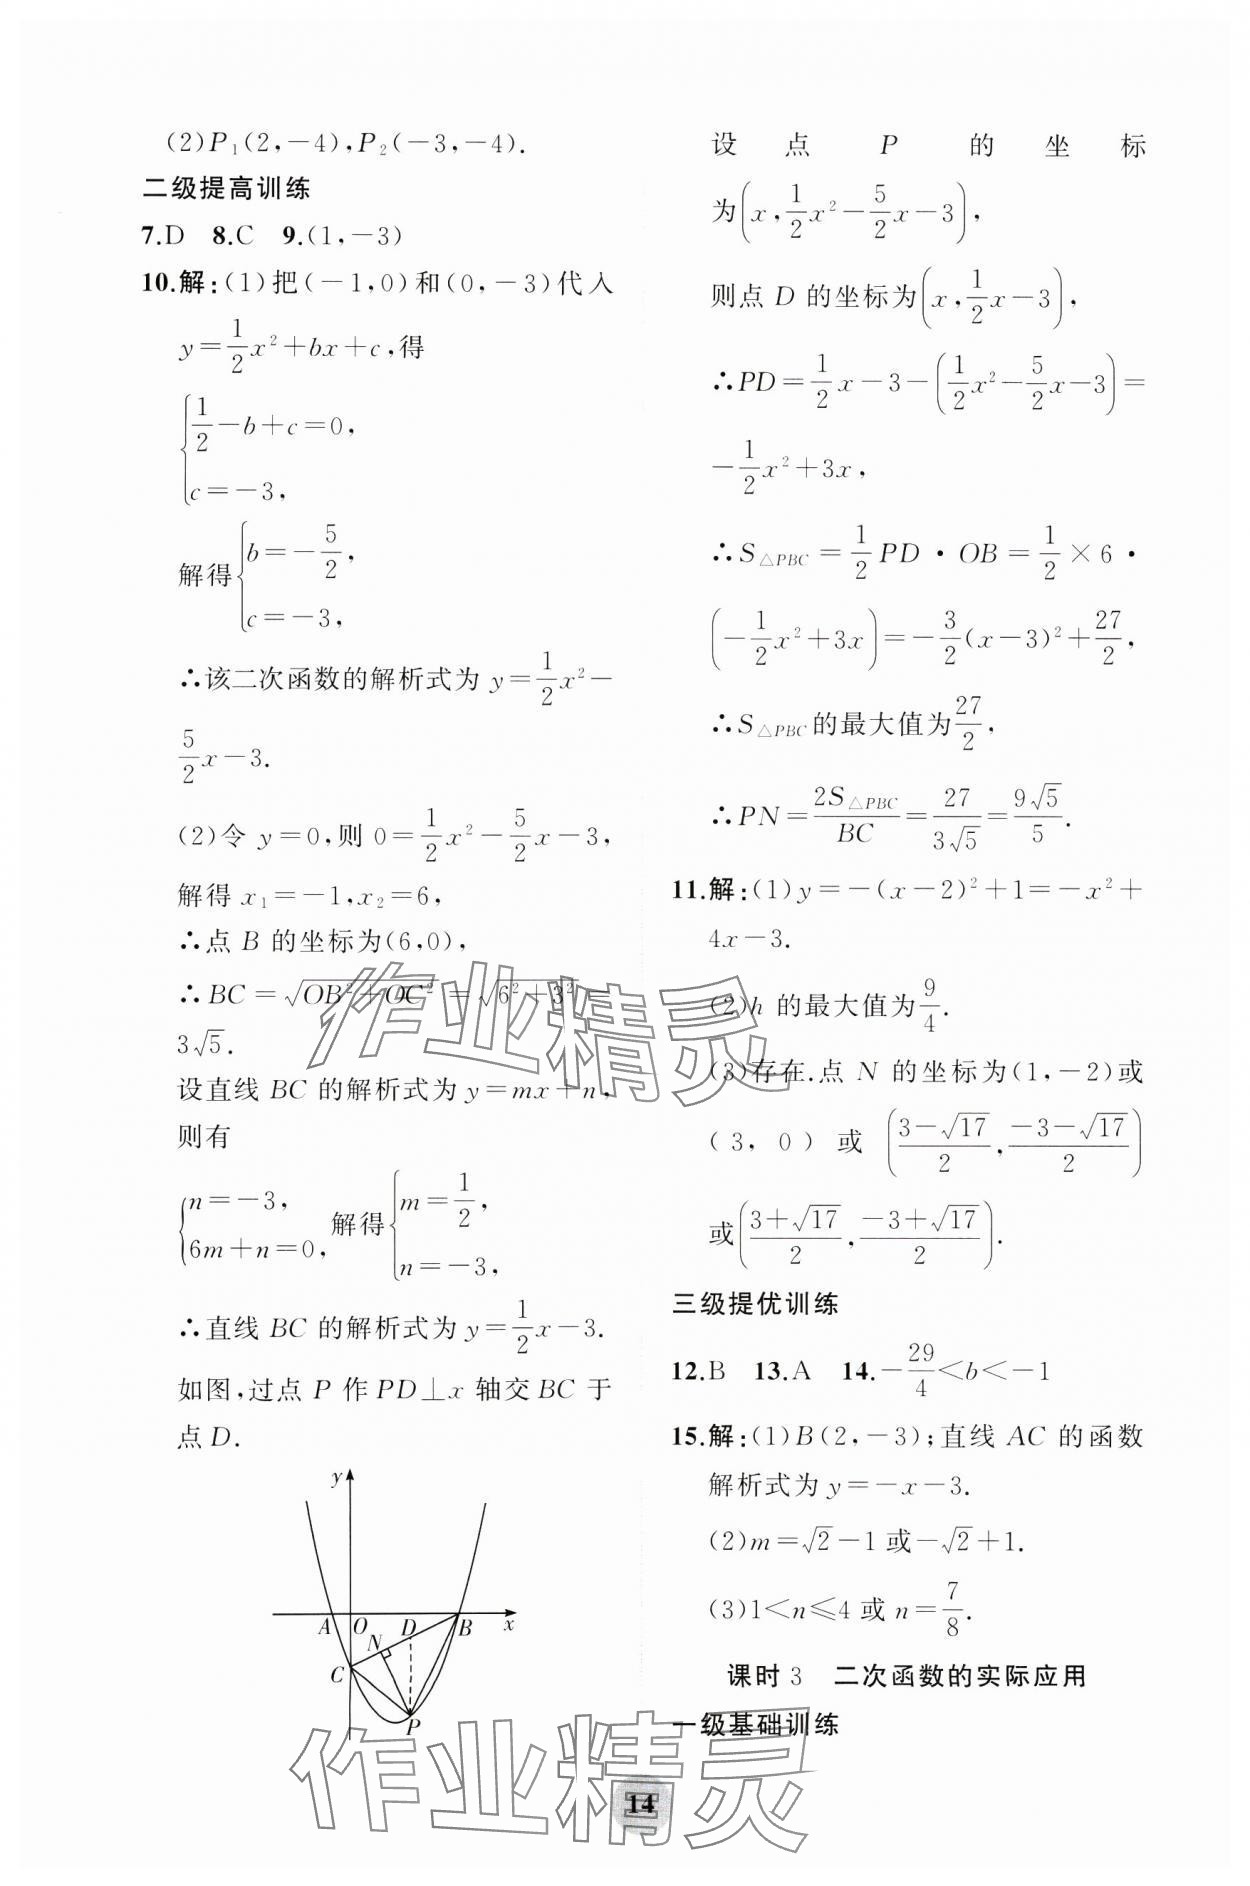 (2)P₁(2,-4),P₂(-3,-4).
二级提高训练
7.D 8.C 9.(1,-3)
10.解:(1)把(-1,0)和(0,-3)代入
y=\frac{1}{2}x²+bx+c,得
{\frac{1}{2}-b+c=0,
c=-3,
解得{b=-\frac{5}{2},
c=-3,
∴该二次函数的解析式为 y=\frac{1}{2}x²-
\frac{5}{2}x-3.
(2)令 y=0,则 0=\frac{1}{2}x²-\frac{5}{2}x-3,
解得 x₁=-1,x₂=6,
∴点 B 的坐标为(6,0),
∴BC=\sqrt{OB²+OC²}=\sqrt{6²+3²}=
3\sqrt{5}.
设直线 BC 的解析式为 y=mx+n,
则有
{n=-3,
6m+n=0, 解得{m=\frac{1}{2},
n=-3,
∴直线 BC 的解析式为 y=\frac{1}{2}x-3.
如图,过点 P 作 PD⊥x 轴交 BC 于
点 D.
y
A O D B x
N
C
P
设点 P 的坐标
为(x,\frac{1}{2}x²-\frac{5}{2}x-3),
则点 D 的坐标为(x,\frac{1}{2}x-3),
∴PD=\frac{1}{2}x-3-(\frac{1}{2}x²-\frac{5}{2}x-3)=
-\frac{1}{2}x²+3x,
∴S△PBC=\frac{1}{2}PD·OB=\frac{1}{2}×6·
(-\frac{1}{2}x²+3x)=-\frac{3}{2}(x-3)²+\frac{27}{2},
∴S△PBC的最大值为\frac{27}{2},
∴PN=\frac{2S△PBC}{BC}=\frac{27}{3\sqrt{5}}=\frac{9\sqrt{5}}{5}.
11.解:(1)y=-(x-2)²+1=-x²+
4x-3.
(2)h 的最大值为\frac{9}{4}.
(3)存在.点 N 的坐标为(1,-2)或
(3,0)或(\frac{3-\sqrt{17}}{2},\frac{-3-\sqrt{17}}{2})
或(\frac{3+\sqrt{17}}{2},\frac{-3+\sqrt{17}}{2}).
三级提优训练
12.B 13.A 14.-\frac{29}{4}<b<-1
15.解:(1)B(2,-3);直线 AC 的函数
解析式为 y=-x-3.
(2)m=\sqrt{2}-1 或-\sqrt{2}+1.
(3)1<n≤4 或 n=\frac{7}{8}.
课时 3 二次函数的实际应用
一级基础训练
14
作业精灵
作业精灵